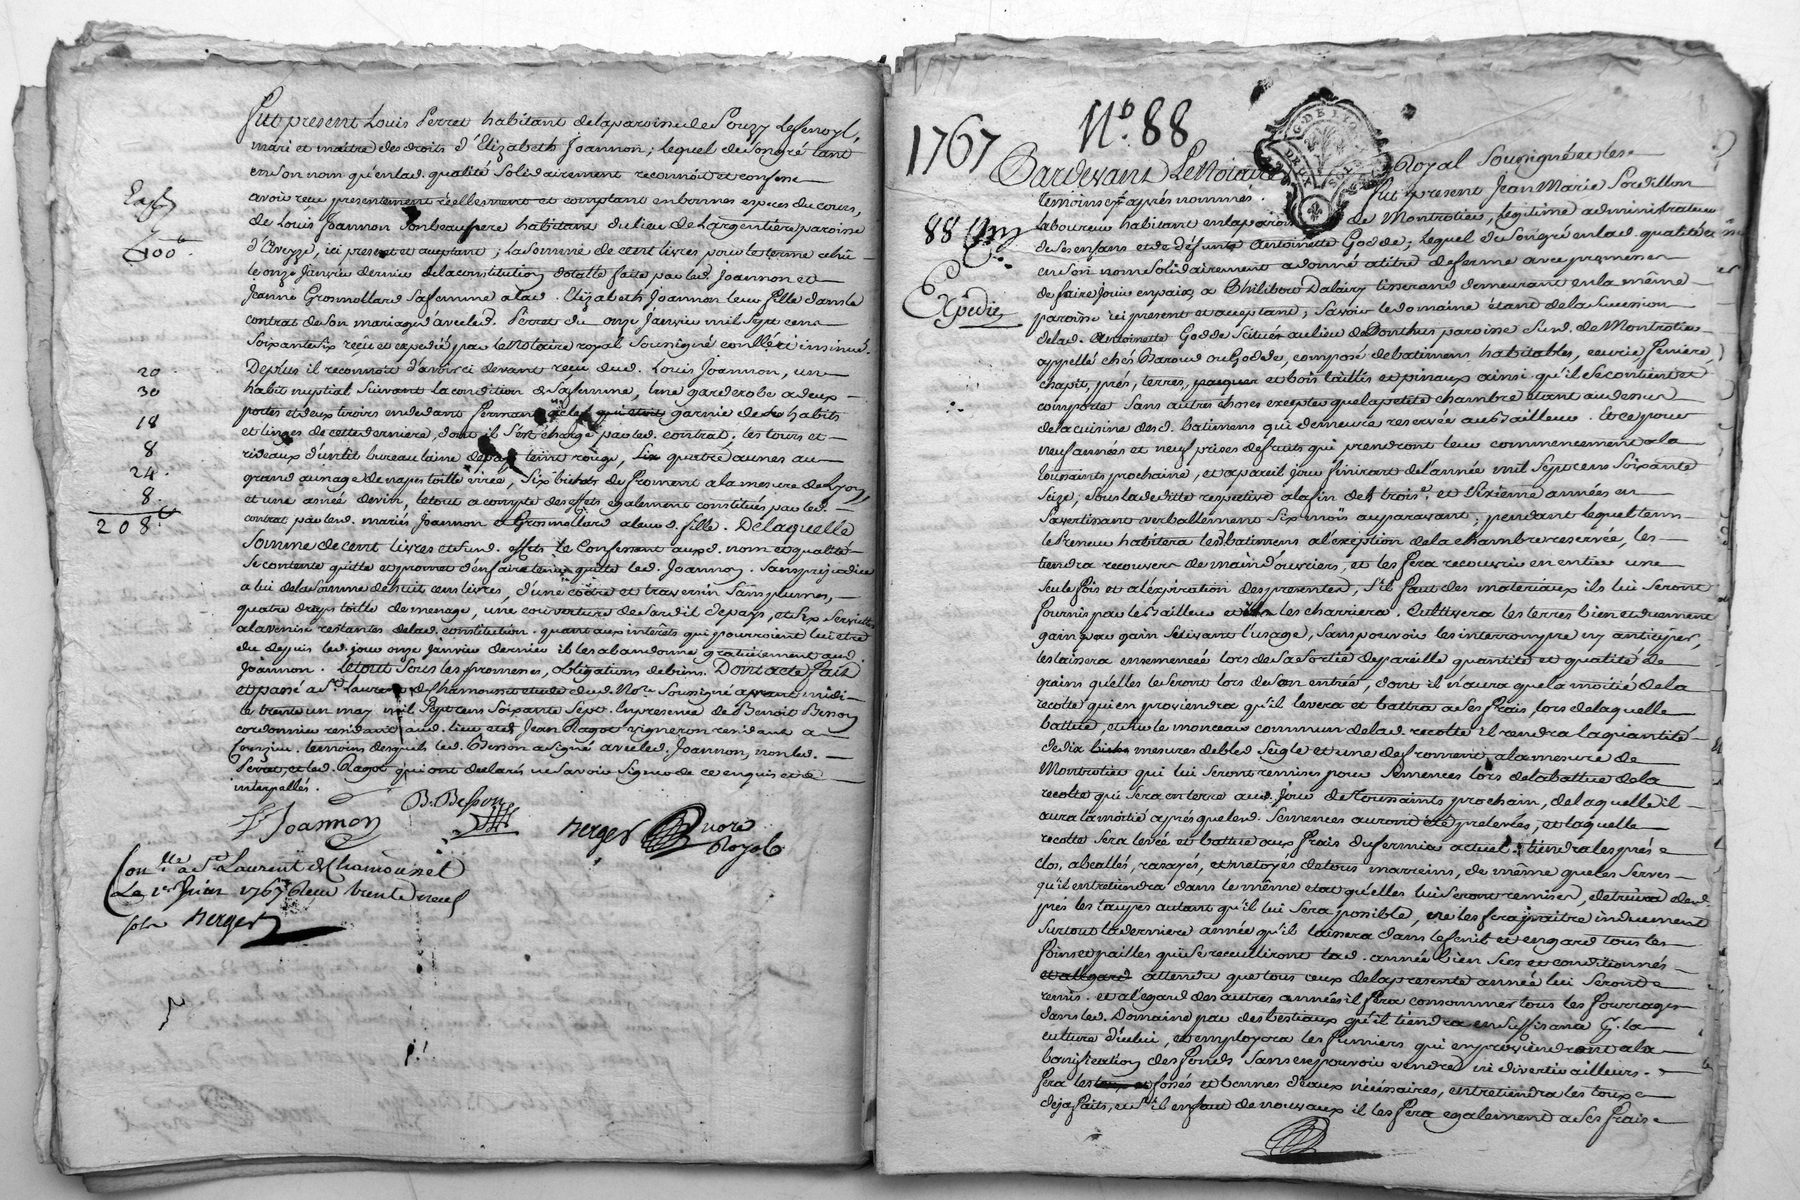 Fut present Louis Perret habitant delaparoisse de Souzy Lefenoyl,
mari et maitre des droits d'Elizabeth Joannon; lequel de Songré tant
en Son nom qu'enlad. qualité Solidairement reconnoit et confesse
avoir reçu presentement réellement et comptant en bonnes especes du cours,
de Louis Joannon Sonbeaupere habitant du lieu de Largentiere paroisse
d'Aveyzé, ici present et acceptant; La Somme de cent livres pour le terme echû
le onze Janvier dernier dela constitution dotalle faite par led. Joannon et
Jeanne Grosmollard Safemme alad. Elizabeth Joannon leur fille dans le
contrat de Son mariage d'avec led. Perret du onze Janvier mil Sept cens
Soixante Six reçu et expedié par le Notaire royal Soussigné controllé et insinué.
Deplus il reconnoit d'avoir ci devant reçu dud. Louis Joannon, un
habit nuptial Suivant la condition de Safemme, une garderobe a deux
portes et deux tiroirs en dedant fermant a clef garnie de habits
et linges de cette derniere, dont il S'est chargé par led. contrat; les tours et
rideaux d'un lit bureau laine depays teint rouge, Six quatre aunes au
grand aunage de napes toille virée, Six bichets de froment a la mesure de Lyon,
et une asnée de vin, le tout a compte des effets egalement constitués par led.
contrat par lesd. mariés Joannon et Grosmollard a leurd. fille. De laquelle
Somme de cent livres et Susd. effets le Confessant auxd. nom et qualité
Se contente quitte et promet d'en faire tenir quitte led. Joannon. Sans prejudice
a lui de la Somme de huit cens livres, d'une coëtre et traversin Sans plumes,
quatre draps toille de menage, une couverture de Sardil depays, et Six Serviettes
alavenise restantes delad. constitution. quant aux intérêts qui pourroient lui etre
du depuis led. jour onze Janvier dernier il les abandonne gratuitement aud.
Joannon. Le tout Sous les promesses, obligations de biens. Dont acte Fait
et passé a St. Laurent de Chamousset etude dud. Nore. Soussigné avant midi
le trente un may mil Sept cens Soixante Sept. En presence de Benoit Besson
cordonnier residant aud. lieu et de Jean Ragot vigneron residant a
temoins desquels led. Besson a signé avec led. Joannon, non led.
Perret, et led. Ragot qui ont declarés ne Savoir Signer de ce enquis et
interpellés.
L Joannon
B. Besson
Berger Nore
Royal
Con.lle a St. Laurent de Chamousset
Le 1er Juin 1767 Reçu trente neuf
sols Berger
100
20
30
18
8
24
8
208
1767
No. 88
G. DE LYON
DEUX SOLS
88
Expedié
Pardevant Le Notaire Royal Soussigné et les
temoins cy après nommés. Fut present Jean Marie
Laboureur habitant en la paroisse de Montrotier, Legitime administrateur
de Ses enfans et de défunte Antoinette Godde; lequel de Songré enlad. qualité et
en Son nom Solidairement a donné a titre de ferme avec promesse
de faire jouir en paix a Philibert Dalaivy tisserand demeurant en la même
paroisse ici present et acceptant; Savoir le domaine étant de la Succession
delad. Antoinette Godde Scitué au lieu de paroisse Susd. de Montrotier
appellé chés Baroud ou Godde, composé de batimens habitables, ecurie feniere,
chapit, prés, terres, paquer et bois taillis et pinaux ainsi qu'il Se contient et
comporte Sans autres choses excepter que la petite chambre étant au dessus
de la cuisine desd. batimens qui demeure reservée au Bailleur. Et ce pour
neuf années et neuf prises de fruits qui prendront leur commencement a la
Toussaints prochaine, et a pareil jour finirant de l'année mil Sept cens Soixante
Seize, Sous la deditte respective a la fin des trois.e et Sixième années en
S'avertissant verballement Six mois auparavant; pendant lequel tems
le Preneur habitera lesd. batimens a l'exeption de la chambre reservée, les
tiendra recouvers de main d'ouvriers, et les fera recouvrir en entier une
Seule fois et a l'expiration des presentes, S'il faut des materiaux ils lui Seront
fournis par le Bailleur et il les charriera. Cultivera les terres bien et duement
gain par gain Suivant l'usage, Sans pouvoir les interrompre ny antreper,
les laissera ensemencée lors de Sa Sortie de pareille quantité et qualité de
grains qu'elles le Seront lors de Son entrée, dont il n'aura que la moitié de la
recolte qui en proviendra qu'il levera et battra a Ses frais, lors de laquelle
battue, et Sur le monceaux commun de lad. recolte il rendra la quantité
de dix mesures de bled Seigle et une de froment, a la mesure de
Montrotier qui lui Seront remises pour Semences lors de la battue de la
recolte qui Sera en terre aud. jour de Toussaints prochain, de laquelle il
aura la moitié après que lesd. Semences auront été prelevées, et laquelle
recolte Sera levée et battue aux frais du fermier actuel. tiendra les prés
clos, abeallés, rasayés, et netoyés de tous marreins, de même que les Serves
qu'il entretiendra dans le même etat qu'elles lui Seront remises, detruira desd.
prés les taupes autant qu'il lui Sera possible, et les fera naitre induement
Surtout la derniere année qu'il laissera dans le fenil et engard tous les
foins et pailles qui Se recueilliront lad. année bien Secs et conditionnés
attendu que tous ceux de la presente année lui Seront
remis. et a l'égard des autres années il fera consommer tous les fourrages
dans led. Domaine par des bestiaux qu'il tiendra en Suffisance p. la
culture d'icelui, et employera les fumiers qui en proviendront a la
bonification des fonds Sans en pouvoir vendre ni divertir ailleurs.
fera les fossés et bonnes d'eaux nécéssaires, entretiendra les tous
deja faits, et S'il en faut de nouveaux il les fera egalement a Ses frais